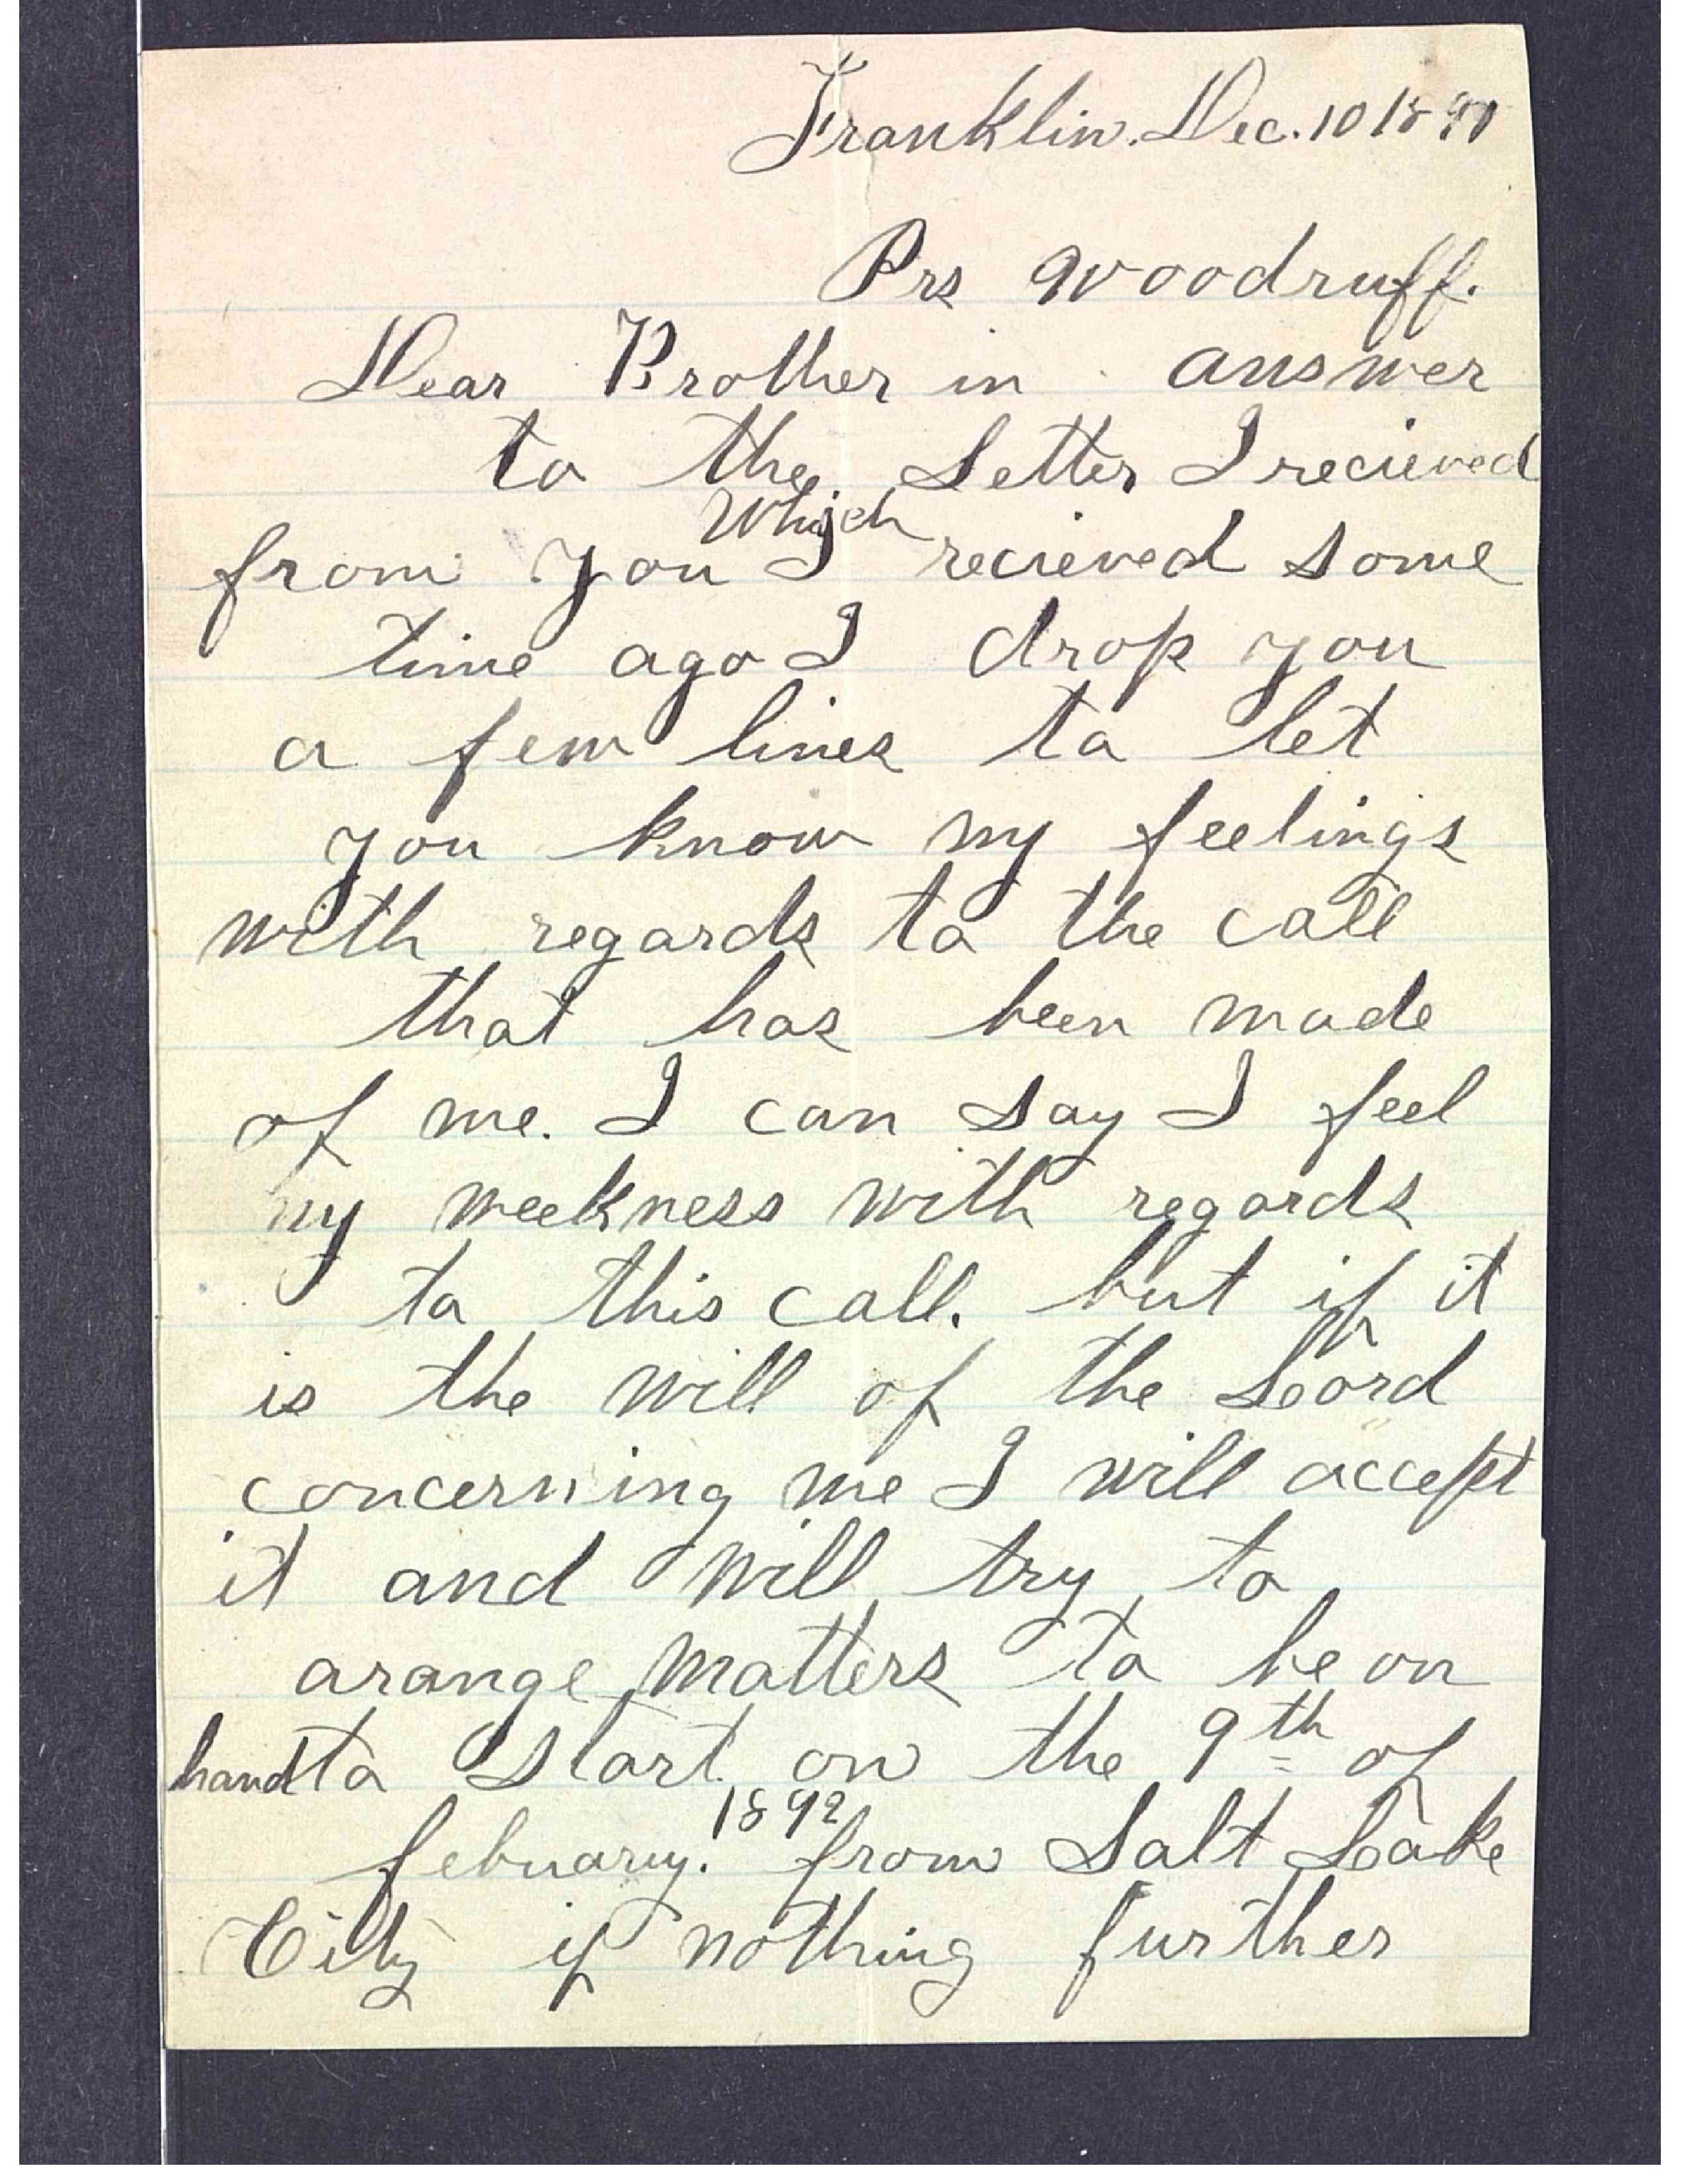 Franklin. Dec. 10 1891
Prs Woodruff.
Dear Brother in answer
to the Letter I recieved
Which
from you I recieved some
time ago I drop you
a few lines to let
you know my feelings
with regards to the call
that has been made
of me. I can say I feel
my weekness with regards
to this call. but if it
is the will of the Lord
concerning me I will accept
it and will try to
arange matters to be on
hand to start on the 9th of
1892
febuary. from Salt Lake
City if nothing further